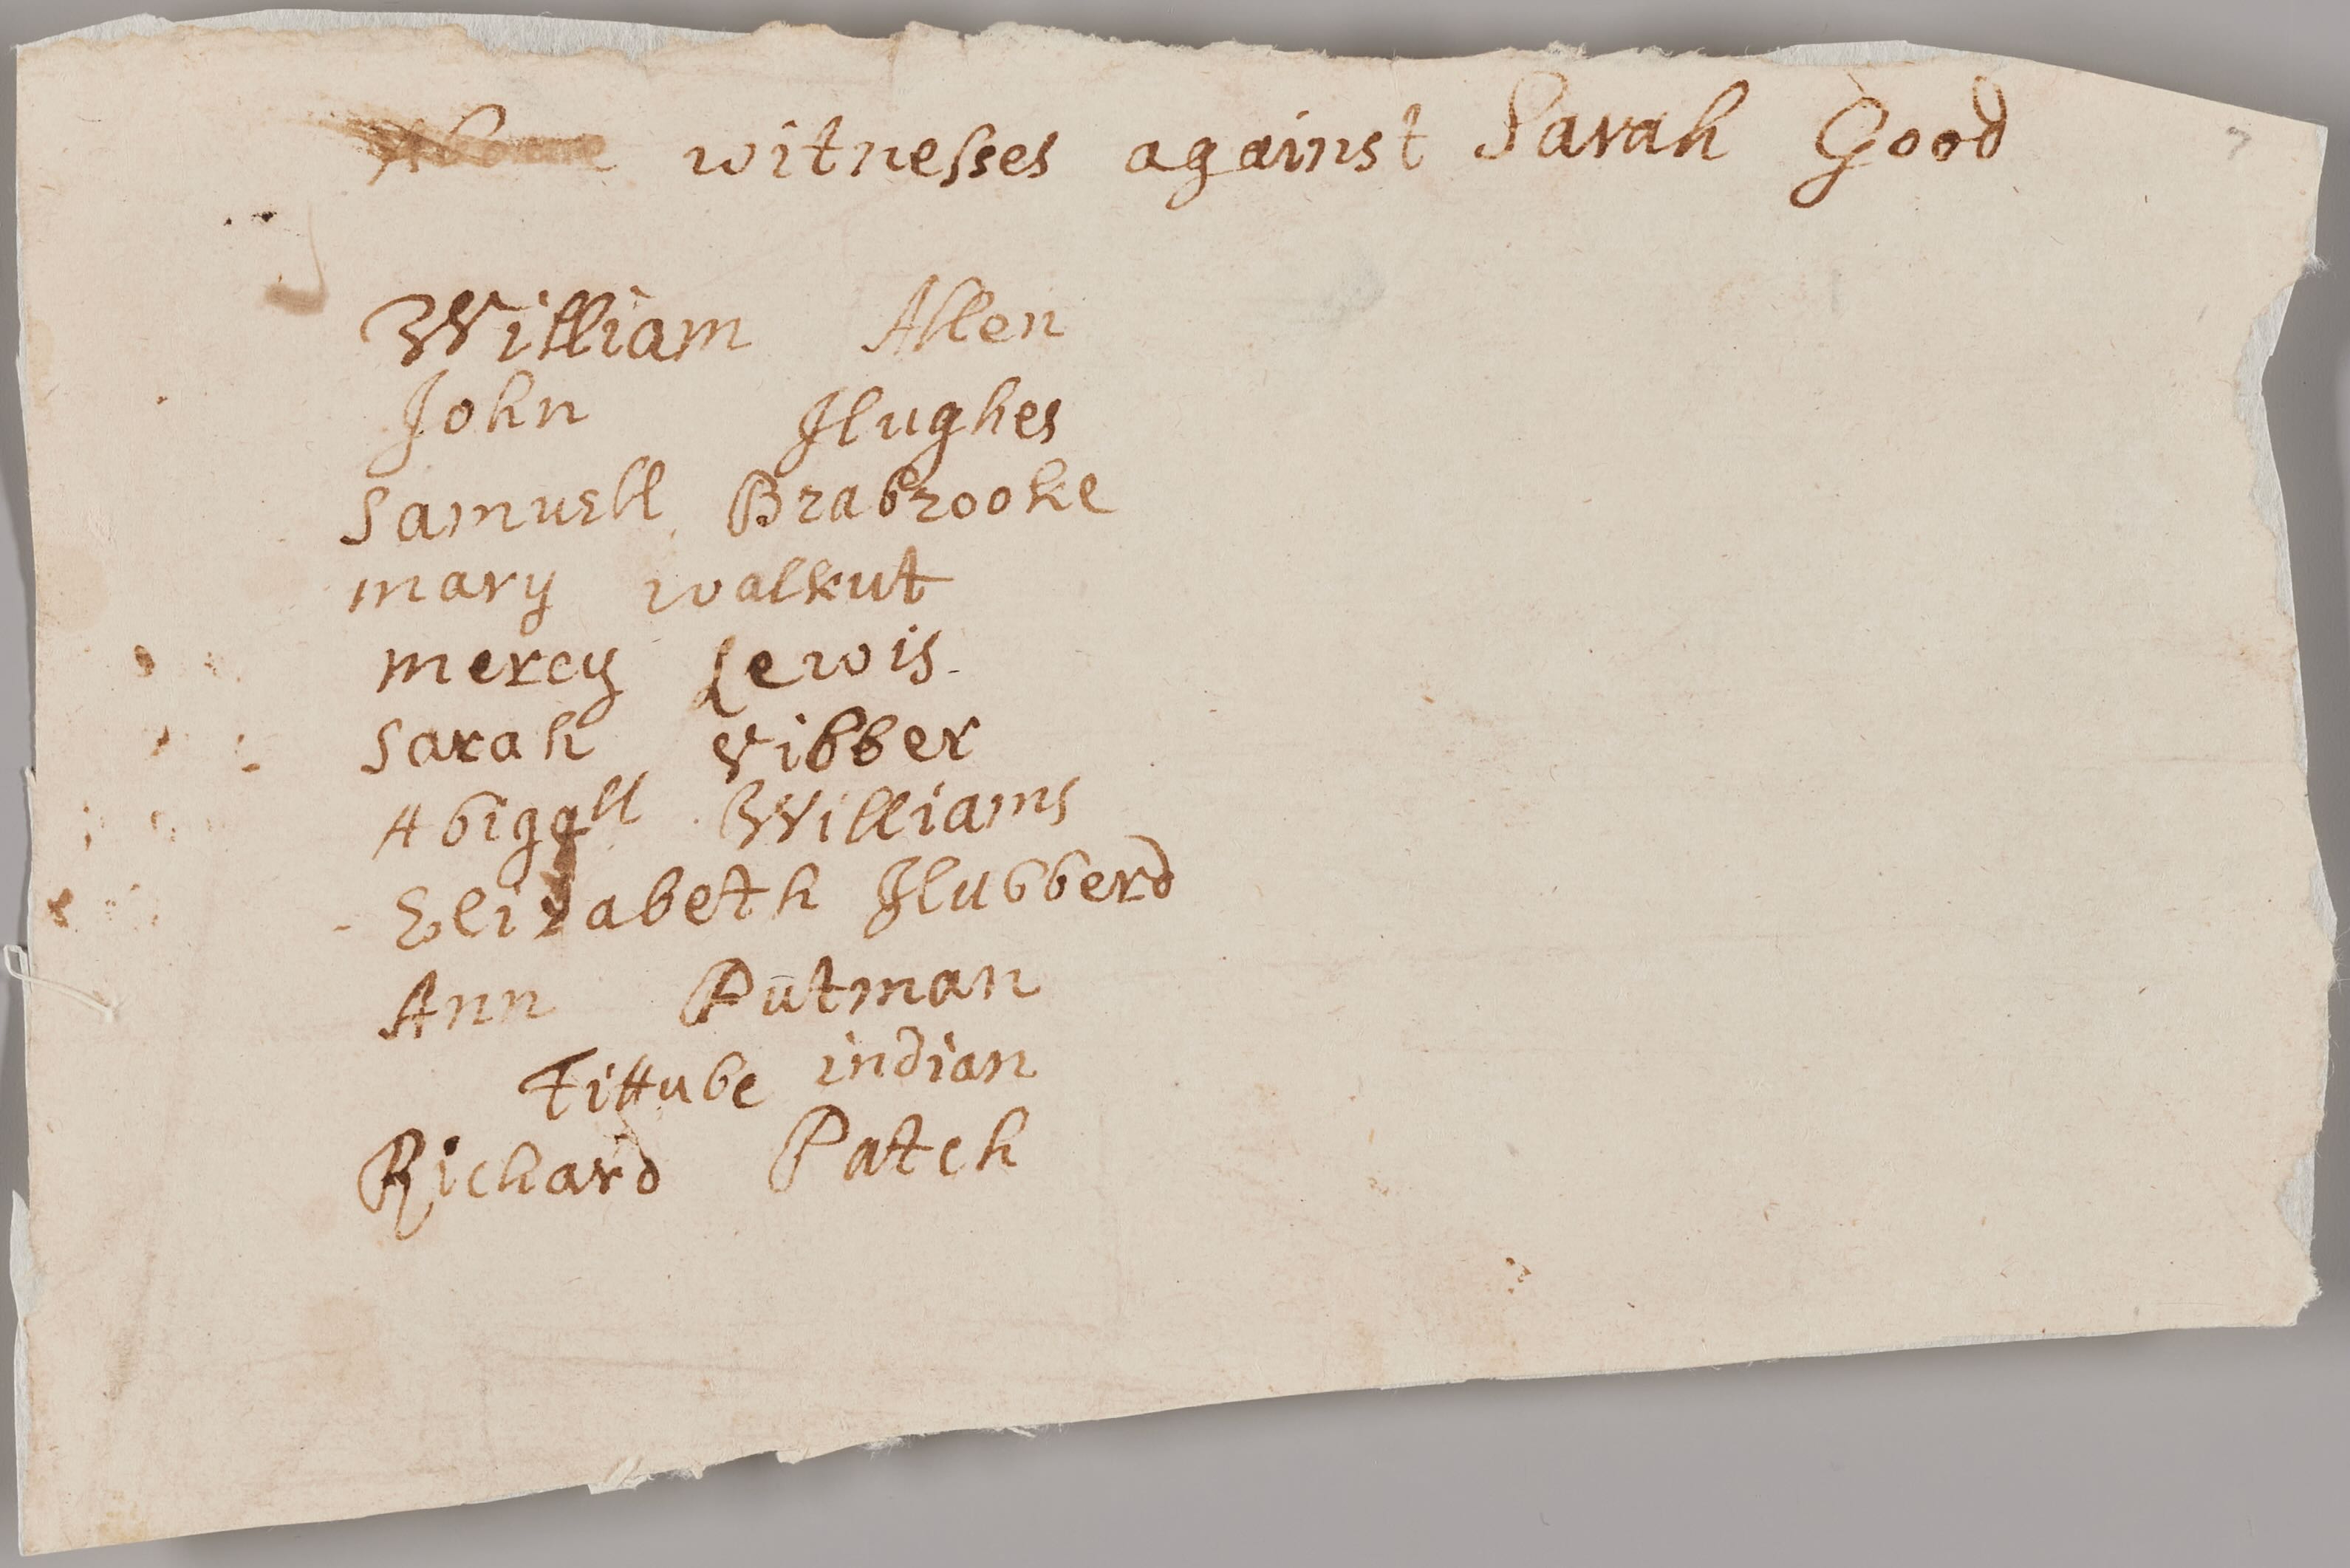 witnesses against Sarah Good
William Allen
John Hughes
Samuell Brabrooke
mary walkut
mercy Lewis
Sarah vibber
Abigall Williams
Elizabeth Hubberd
Ann Putman
Tittube indian
Richard Patch